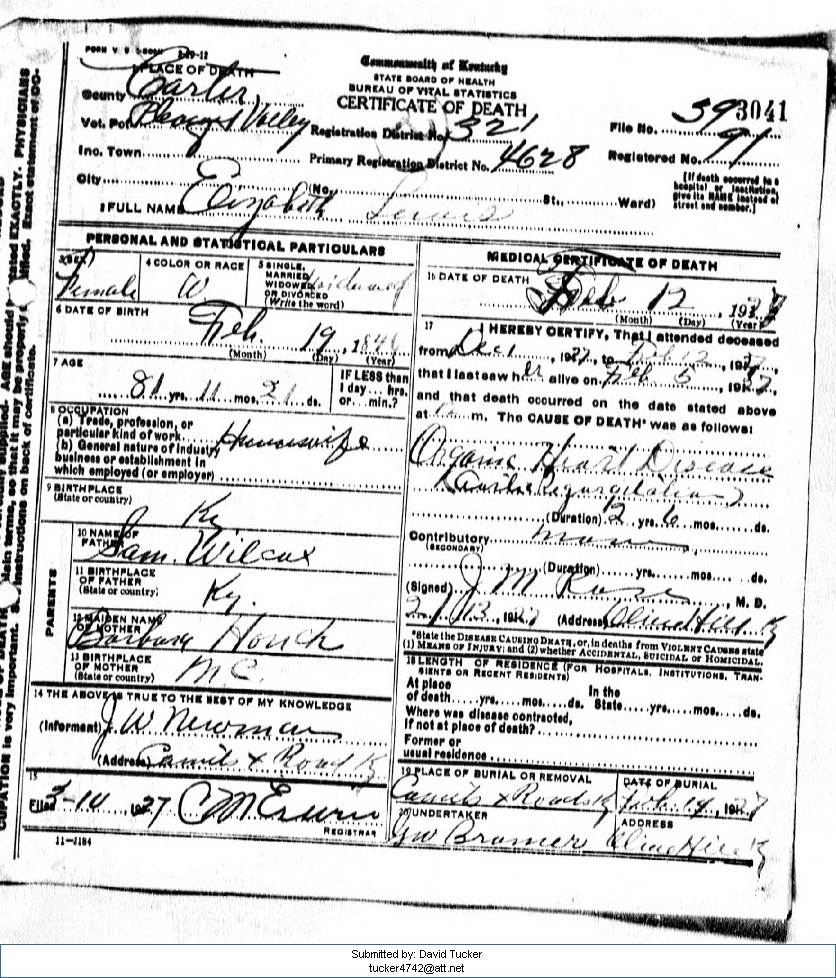 FORM V. S.
PLACE OF DEATH
Commonwealth of Kentucky
STATE BOARD OF HEALTH
BUREAU OF VITAL STATISTICS
CERTIFICATE OF DEATH
County Carter
Vot. Pct. Valley
Registration District No. 321
File No. 3041
Inc. Town
Primary Registration District No. 4628
Registered No. 91
City (No. St., Ward)
[If death occurred in a hospital or institution, give its NAME instead of street and number.]
2 FULL NAME Elizabeth Lewis
PERSONAL AND STATISTICAL PARTICULARS
3 SEX Female
4 COLOR OR RACE W
5 SINGLE, MARRIED, WIDOWED OR DIVORCED (Write the word) Widowed
6 DATE OF BIRTH Feb. 19, 184
(Month) (Day) (Year)
7 AGE 81 yrs. 11 mos. 21 ds.
IF LESS than 1 day... hrs. or... min.?
8 OCCUPATION
(a) Trade, profession, or particular kind of work Housewife
(b) General nature of industry business or establishment in which employed (or employer)
9 BIRTHPLACE (State or country) Ky
PARENTS
10 NAME OF FATHER Sam Wilcox
11 BIRTHPLACE OF FATHER (State or country) Ky.
12 MAIDEN NAME OF MOTHER Barbara
13 BIRTHPLACE OF MOTHER (State or country) N C.
14 THE ABOVE IS TRUE TO THE BEST OF MY KNOWLEDGE
(Informant) J. W Newman
(Address) Ky
15
Filed 3-10 1927 C M Erwin
REGISTRAR
11-1184
MEDICAL CERTIFICATE OF DEATH
16 DATE OF DEATH Feb 12, 192
(Month) (Day) (Year)
17 I HEREBY CERTIFY, That I attended deceased
from Dec 1, 1927, to Feb 12, 1927,
that I last saw her alive on Feb 5, 1927
and that death occurred on the date stated above
at m. The CAUSE OF DEATH* was as follows:
Organic Heart Disease
Regurgitation)
(Duration) 2 yrs. 6 mos. ds.
Contributory (SECONDARY)
(Duration) yrs. mos. ds.
(Signed) J M Rose, M. D.
2/13, 1927 (Address) Olive Hill Ky
*State the DISEASE CAUSING DEATH, or, in deaths from VIOLENT CAUSES state
(1) MEANS OF INJURY; and (2) whether ACCIDENTAL, SUICIDAL or HOMICIDAL.
18 LENGTH OF RESIDENCE (FOR HOSPITALS, INSTITUTIONS, TRANSIENTS OR RECENT RESIDENTS)
At place of death yrs. mos. ds. In the State yrs. mos. ds.
Where was disease contracted, if not at place of death?
Former or usual residence
19 PLACE OF BURIAL OR REMOVAL
DATE OF BURIAL
Feb. 14, 1927
20 UNDERTAKER
ADDRESS
Olive Hill Ky
Submitted by: David Tucker
tucker4742@att.net